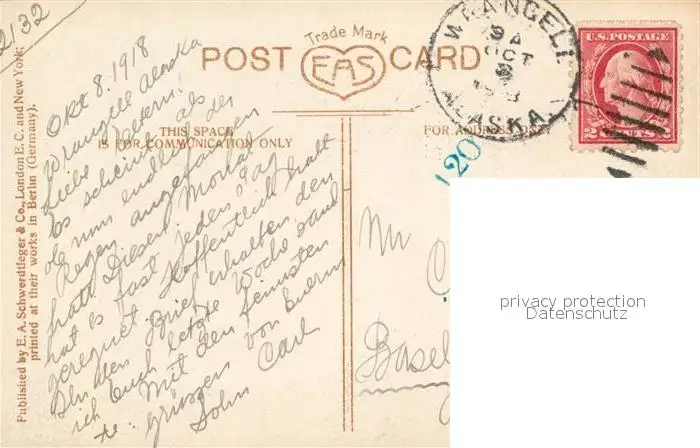 2/32
Trade Mark
POST CARD
EAS
THIS SPACE
IS FOR COMMUNICATION ONLY
FOR ADDRESS ONLY
Published by E. A. Schwerdtfeger & Co., London E. C. and New York;
printed at their works in Berlin (Germany).
WRANGELL
9 A
OCT
ALASKA
U.S. POSTAGE
2 CENTS 2
120
Okt 8. 1918
Wrangell Alaska
Liebe Eltern!
Es scheint als
ob nun endlich der
Regen angefangen
hatt Diesen Monat
hat es fast jeden Tag
geregnet. Hoffentlich hatt
Ihr den Brief erhalten den
ich Euch letzte Woche sand
te. Mit den feinsten
Grüssen von Eurem
Sohn Carl
Mr
C
Basel
privacy protection
Datenschutz